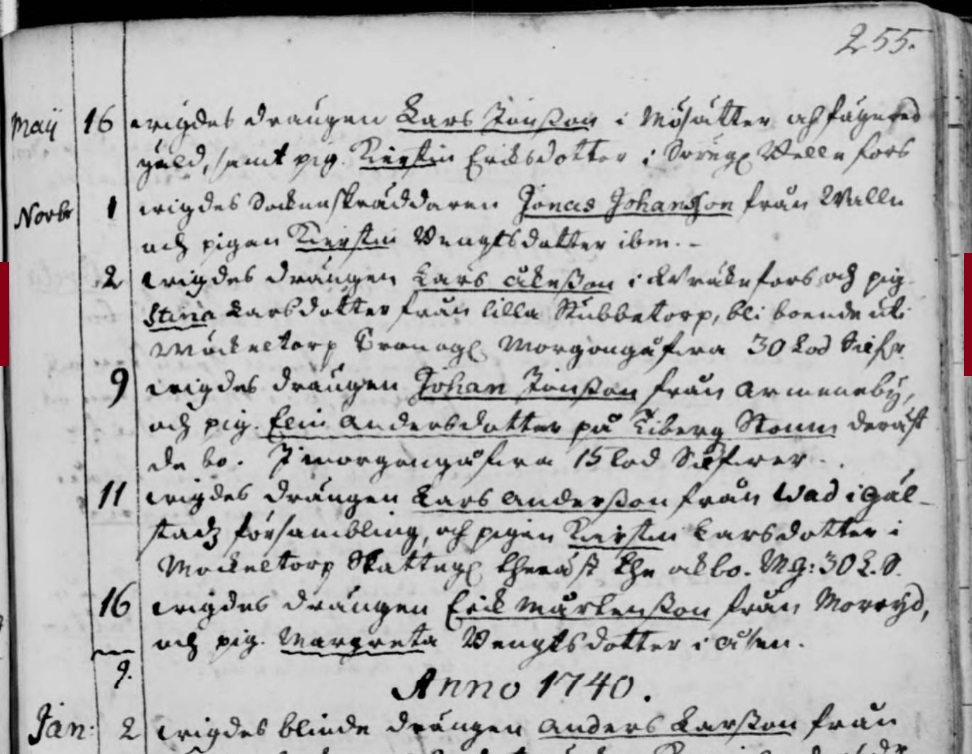 255.
Maij 16 wigdes drängen Lars Jönßon i Mösätter och fägered
gäld, samt pig. Kierstin Ericksdotter i Wellefors
Novbr 1 wigdes Sockneskräddaren Jonas Johanßon från Wälle
och pigan Kierstin Bengtsdotter ibm. -
2 wigdes drängen Lars åkeßon i Kräkefors och pig.
Stina Larsdotter från lilla Stubbetorp, bli boende uti
Möckeltorp Cronogl Morgongåfwa 30 Lod Silfr
9 wigdes drängen Johan Jönßon från Armeneby,
och pig. Elin Andersdotter på Kiberg Stomm deräst
de bo. I morgongåfwa 15 lod Silfwer.
11 wigdes drängen Lars Anderßon från Wad i Gäl-
stadz försambling, och pigan Kierstin Larsdotter i
Möckeltorp Skattegl theräst the ock bo. MG: 30 L. S.
16 wigdes drängen Erick Mårtenßon från Morryd,
och pig. Margreta Bengtsdotter i åsen.
9.
Anno 1740.
Jan: 2 wigdes blinde drängen Anders Larßon från